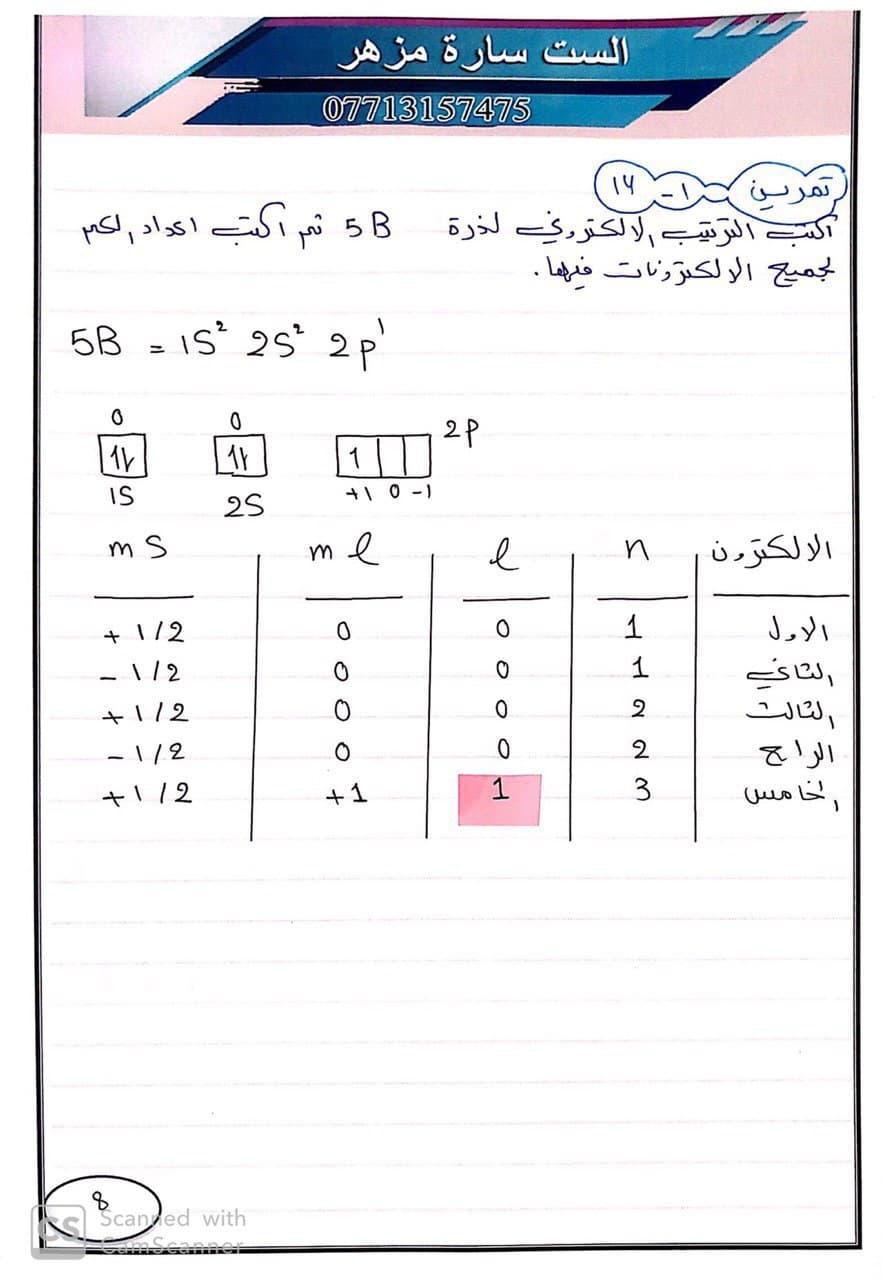 الست سارة مزهر
07713157475
تمرين ١ - ١٢
اكتب الترتيب الالكتروني لذرة 5B ثم اكتب اعداد الكم
لجميع الالكترونات فيها.
5B = 1S² 2S² 2p¹
0 0 2P
1S 2S +1 0 -1
الالكترون n l ml mS
الاول 1 0 0 +1/2
الثاني 1 0 0 -1/2
الثالث 2 0 0 +1/2
الرابع 2 0 0 -1/2
الخامس 3 1 +1 +1/2
8
CS Scanned with
CamScanner